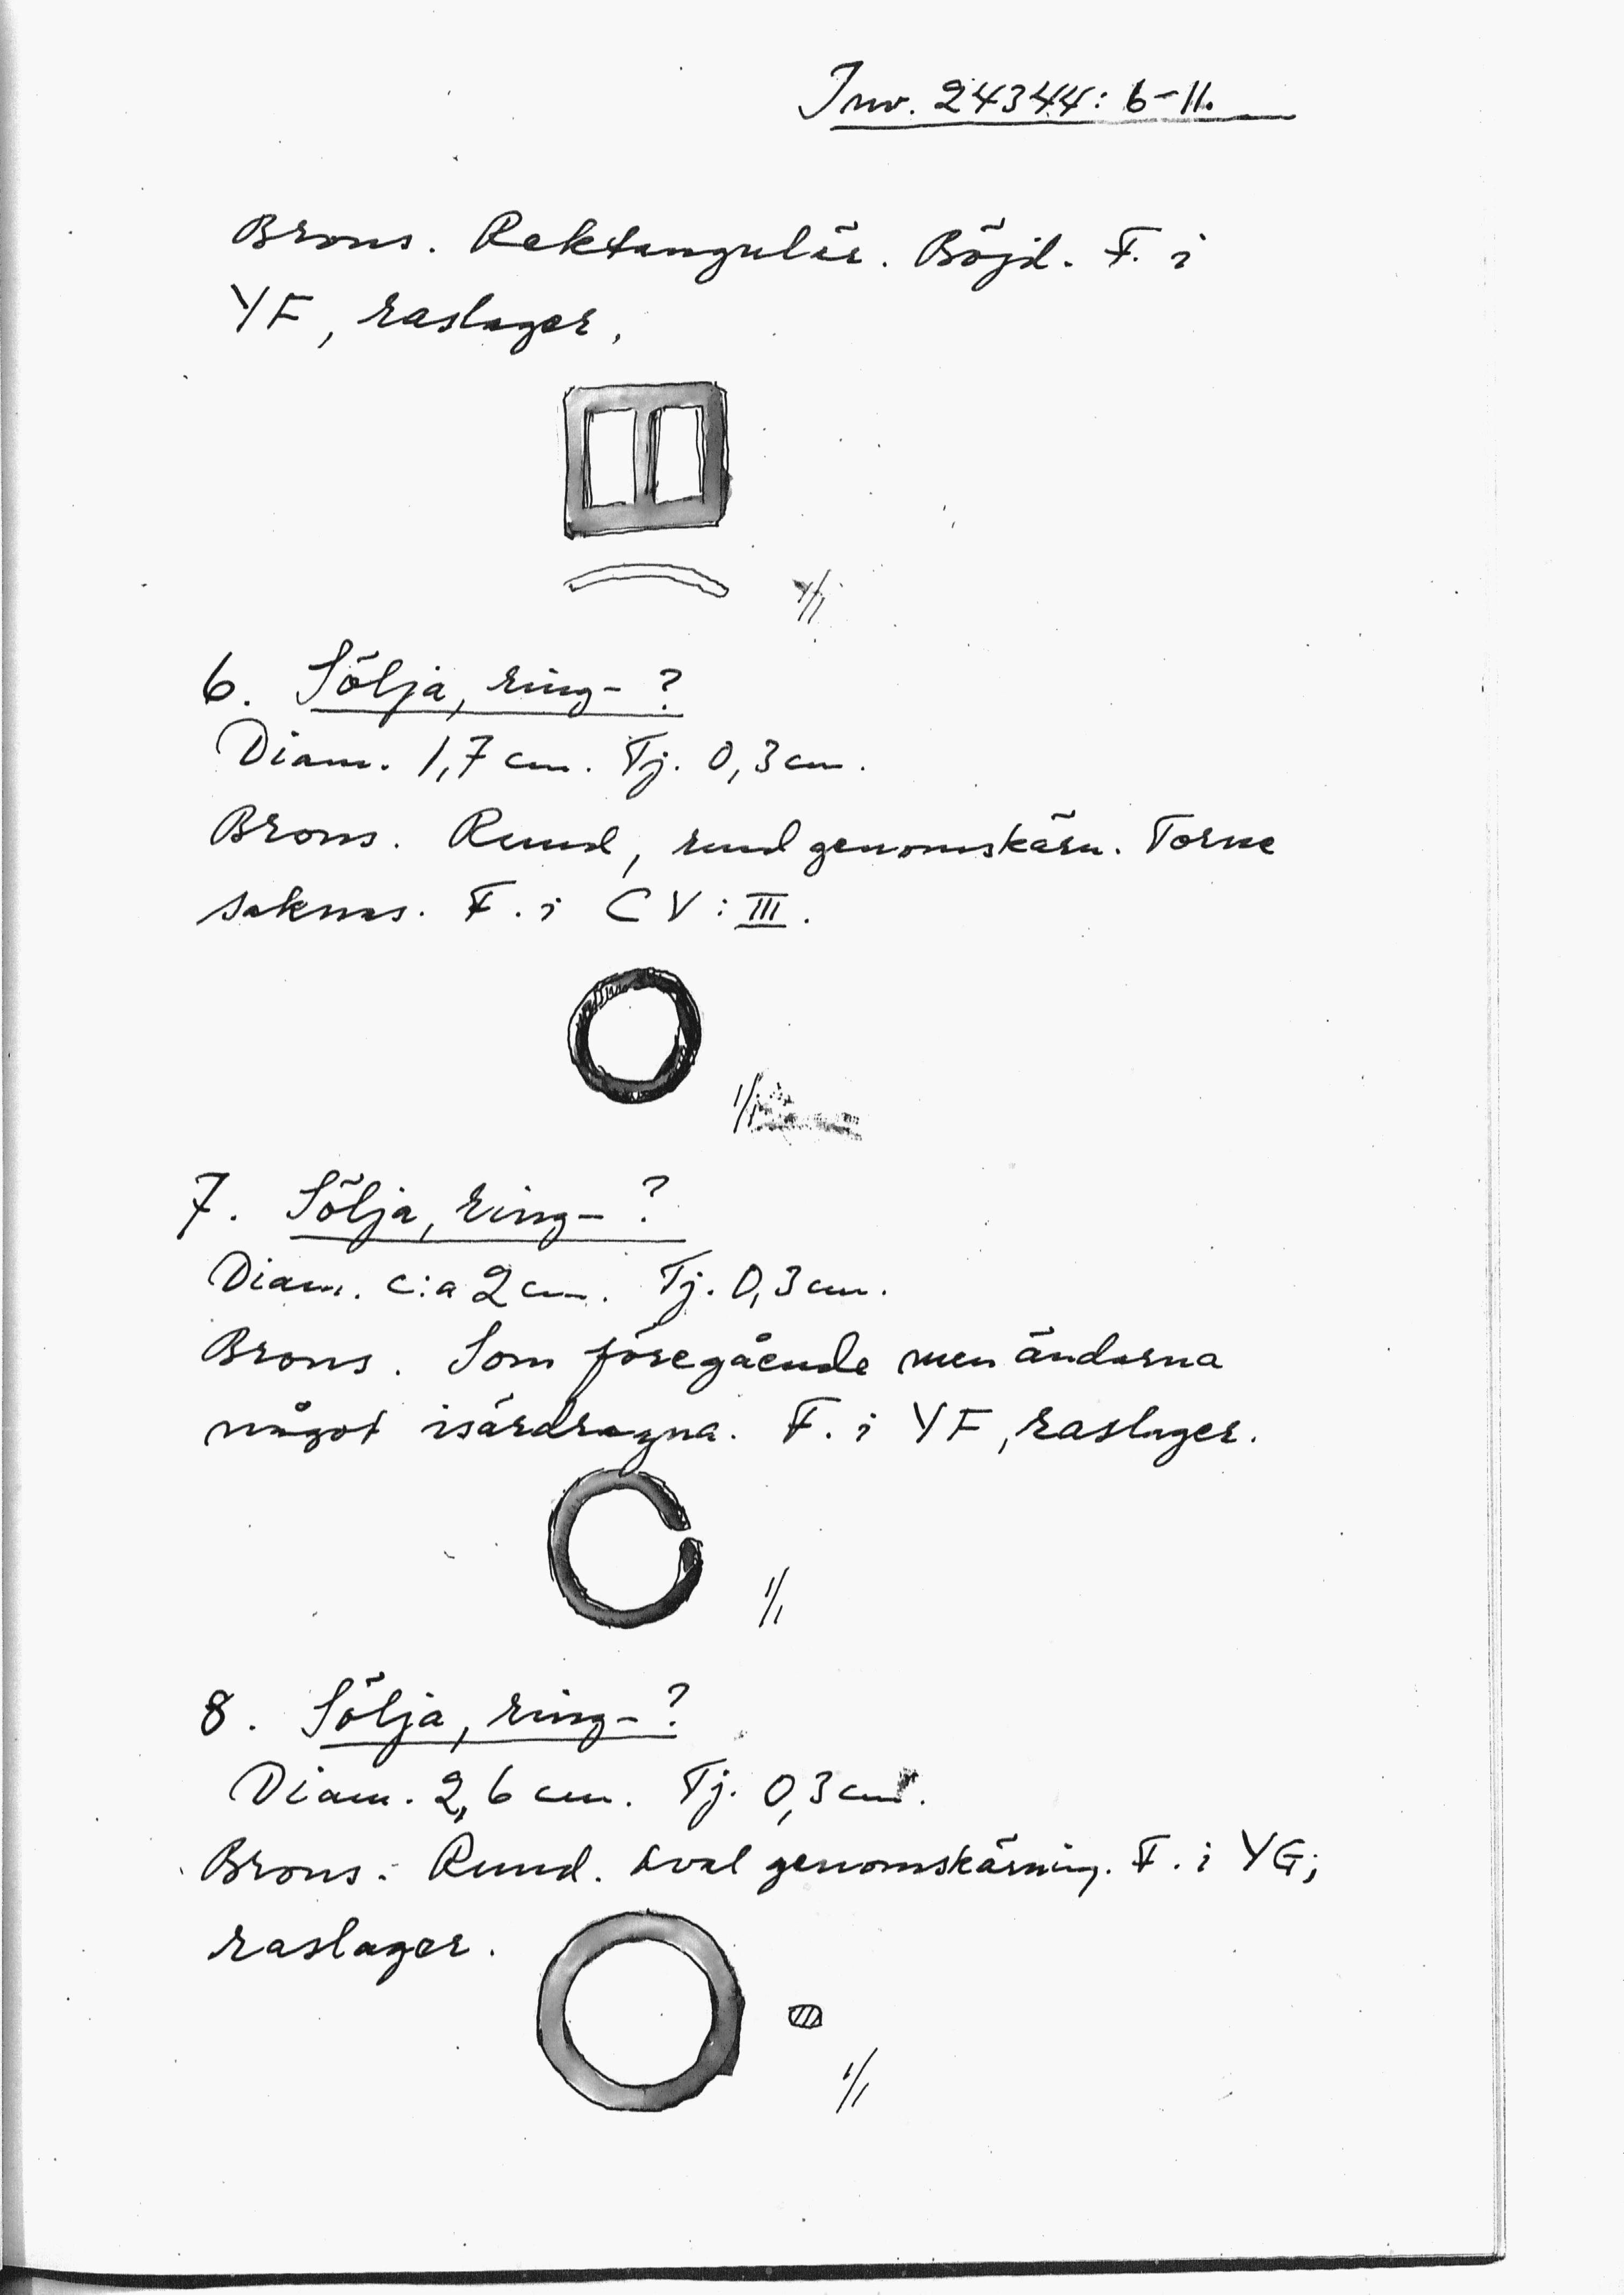 Inv. 24344: 6-11.
Brons. Rektangulär. Böjd. F. i
YF, raslager.
1/1
6. Sölja, ring- ?
Diam. 1,7 cm. Tj. 0,3 cm.
Brons. Rund, rund genomskärn. Torne
saknas. F. i CV: III.
1/1
7. Sölja, ring- ?
Diam. c:a 2 cm. Tj. 0,3 cm.
Brons. Som föregående men ändarna
något isärdragna. F. i YF, raslager.
1/1
8. Sölja, ring- ?
Diam. 2,6 cm. Tj. 0,3 cm.
Brons. Rund. Oval genomskärning. F. i YG;
raslager.
1/1